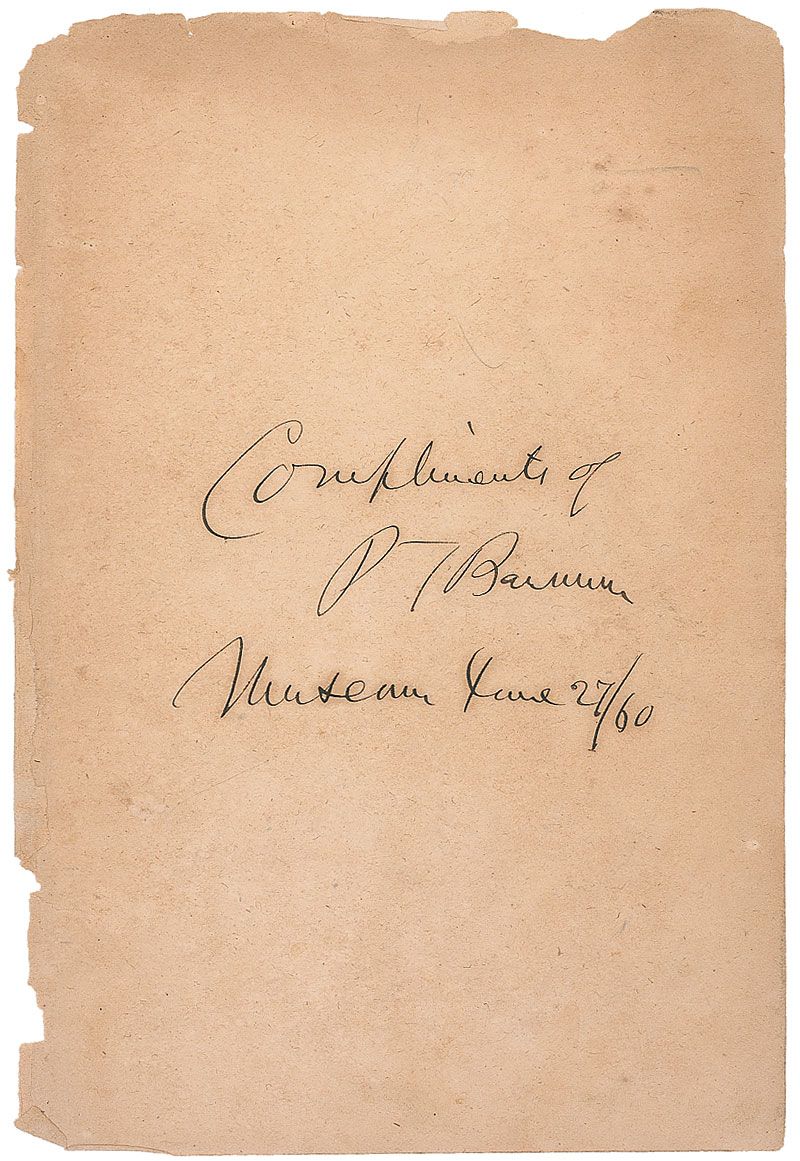 Compliments of
P T Barnum
Museum June 27/60